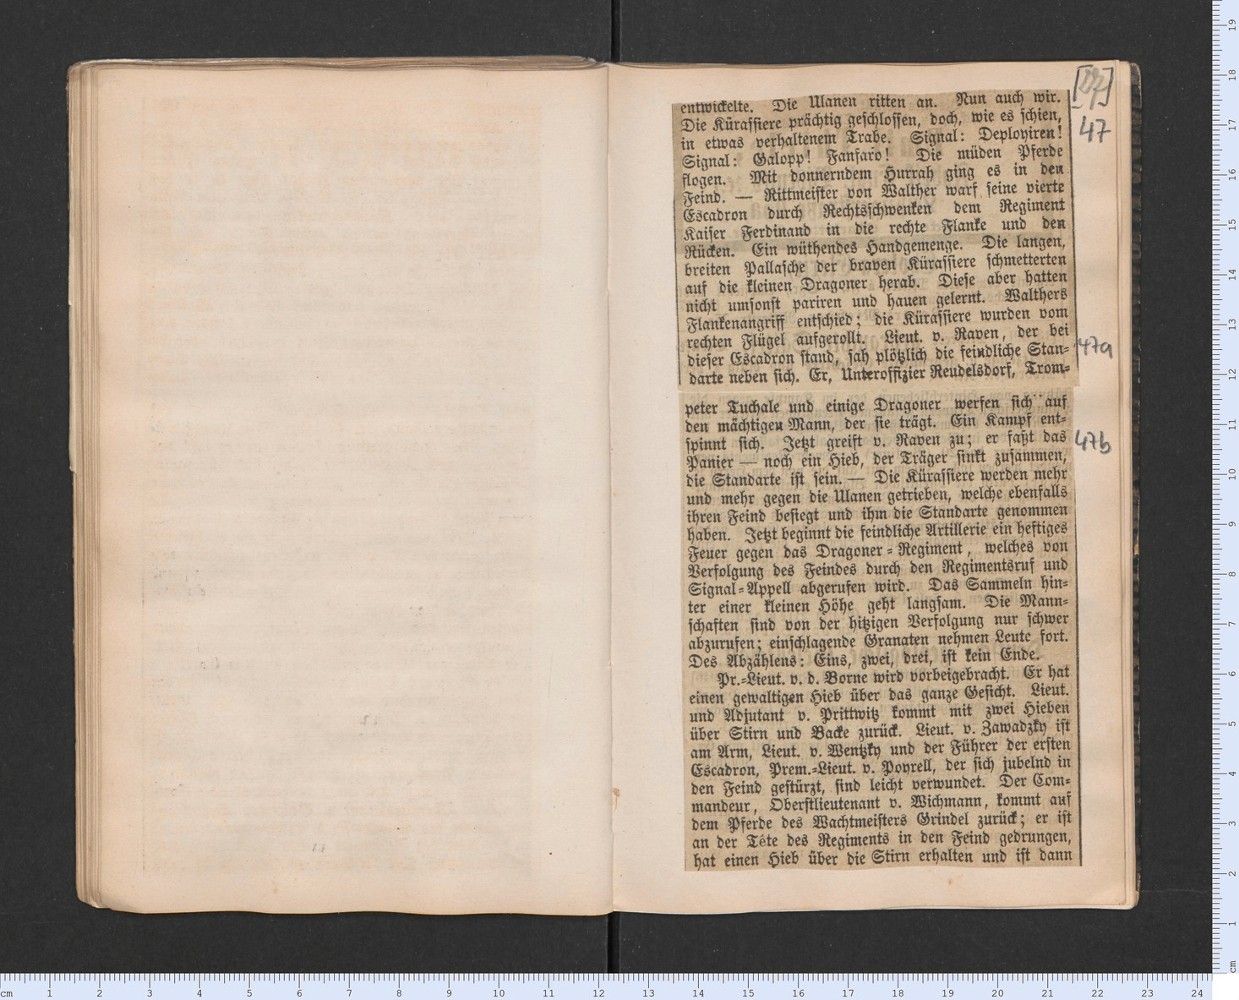 [27]
47
entwickelte. Die Ulanen ritten an. Nun auch wir.
Die Kürassiere prächtig geschlossen, doch, wie es schien,
in etwas verhaltenem Trabe. Signal: Deployiren!
Signal: Galopp! Fanfaro! Die müden Pferde
flogen. Mit donnerndem Hurrah ging es in den
Feind. — Rittmeister von Walther warf seine vierte
Escadron durch Rechtsschwenken dem Regiment
Kaiser Ferdinand in die rechte Flanke und den
Rücken. Ein wüthendes Handgemenge. Die langen,
breiten Pallasche der braven Kürassiere schmetterten
auf die kleinen Dragoner herab. Diese aber hatten
nicht umsonst pariren und hauen gelernt. Walthers
Flankenangriff entschied; die Kürassiere wurden vom
rechten Flügel aufgerollt. Lieut. v. Raven, der bei
dieser Escadron stand, sah plötzlich die feindliche Stan-
darte neben sich. Er, Unteroffizier Reudelsdorf, Trom-
47a
peter Tuchale und einige Dragoner werfen sich auf
den mächtigen Mann, der sie trägt. Ein Kampf ent-
spinnt sich. Jetzt greift v. Raven zu; er faßt das
47b
Panier — noch ein Hieb, der Träger sinkt zusammen,
die Standarte ist sein. — Die Kürassiere werden mehr
und mehr gegen die Ulanen getrieben, welche ebenfalls
ihren Feind besiegt und ihm die Standarte genommen
haben. Jetzt beginnt die feindliche Artillerie ein heftiges
Feuer gegen das Dragoner-Regiment, welches von
Verfolgung des Feindes durch den Regimentsruf und
Signal-Appell abgerufen wird. Das Sammeln hin-
ter einer kleinen Höhe geht langsam. Die Mann-
schaften sind von der hitzigen Verfolgung nur schwer
abzurufen; einschlagende Granaten nehmen Leute fort.
Des Abzählens: Eins, zwei, drei, ist kein Ende.
Pr.-Lieut. v. d. Borne wird vorbeigebracht. Er hat
einen gewaltigen Hieb über das ganze Gesicht. Lieut.
und Adjutant v. Prittwitz kommt mit zwei Hieben
über Stirn und Backe zurück. Lieut. v. Zawadzky ist
am Arm, Lieut. v. Wentzky und der Führer der ersten
Escadron, Prem.-Lieut. v. Poyrell, der sich jubelnd in
den Feind gestürzt, sind leicht verwundet. Der Com-
mandeur, Oberstlieutenant v. Wichmann, kommt auf
dem Pferde des Wachtmeisters Grindel zurück; er ist
an der Tête des Regiments in den Feind gedrungen,
hat einen Hieb über die Stirn erhalten und ist dann